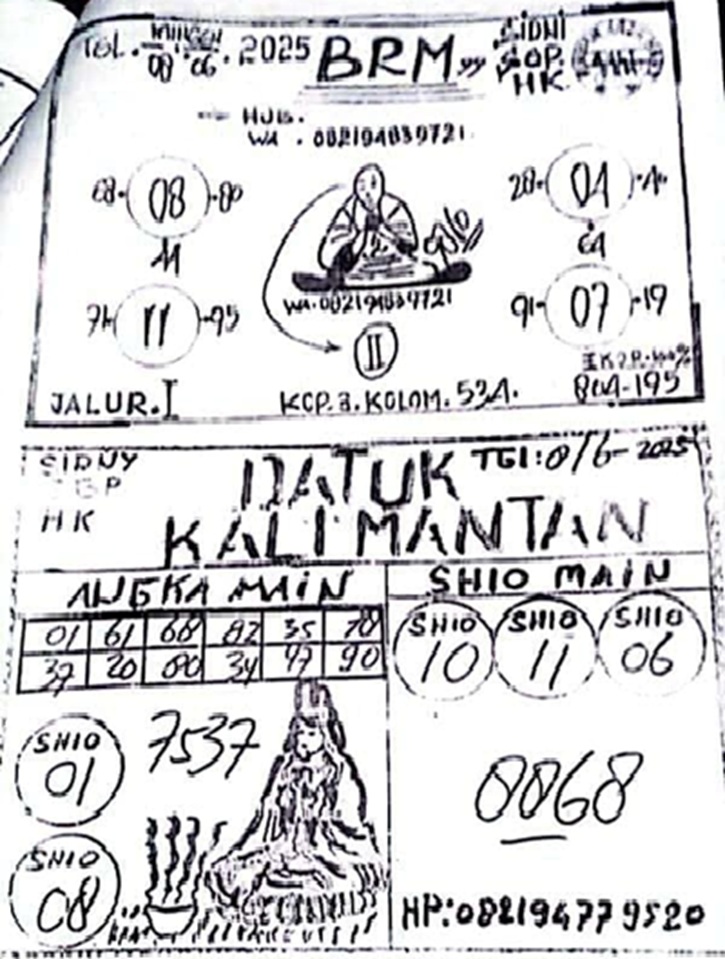 TGL. MINGGU 08.06.2025 BRM„ SIDNI
SGP.
HK
HUB.
WA. 082194839721
68. 08 .80
11
71. 11 .95
28. 01
61
91. 07 .19
WA. 082194839721
II
JALUR. I
KOP. 3. KOLOM. 534.
801-195
SIDNY
SGP
HK
DATUK
KALIMANTAN
TGl: 8/6-2025
ANGKA MAIN
01 61 68 82 35 78
37 20 80 34 97 90
SHIO MAIN
SHIO
10
SHIO
11
SHIO
06
SHIO
01
7537
SHIO
08
8868
HP: 082194779520